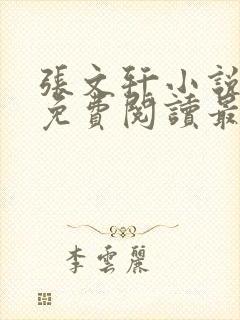 張文軒小說
免費閱讀最
李雲麗